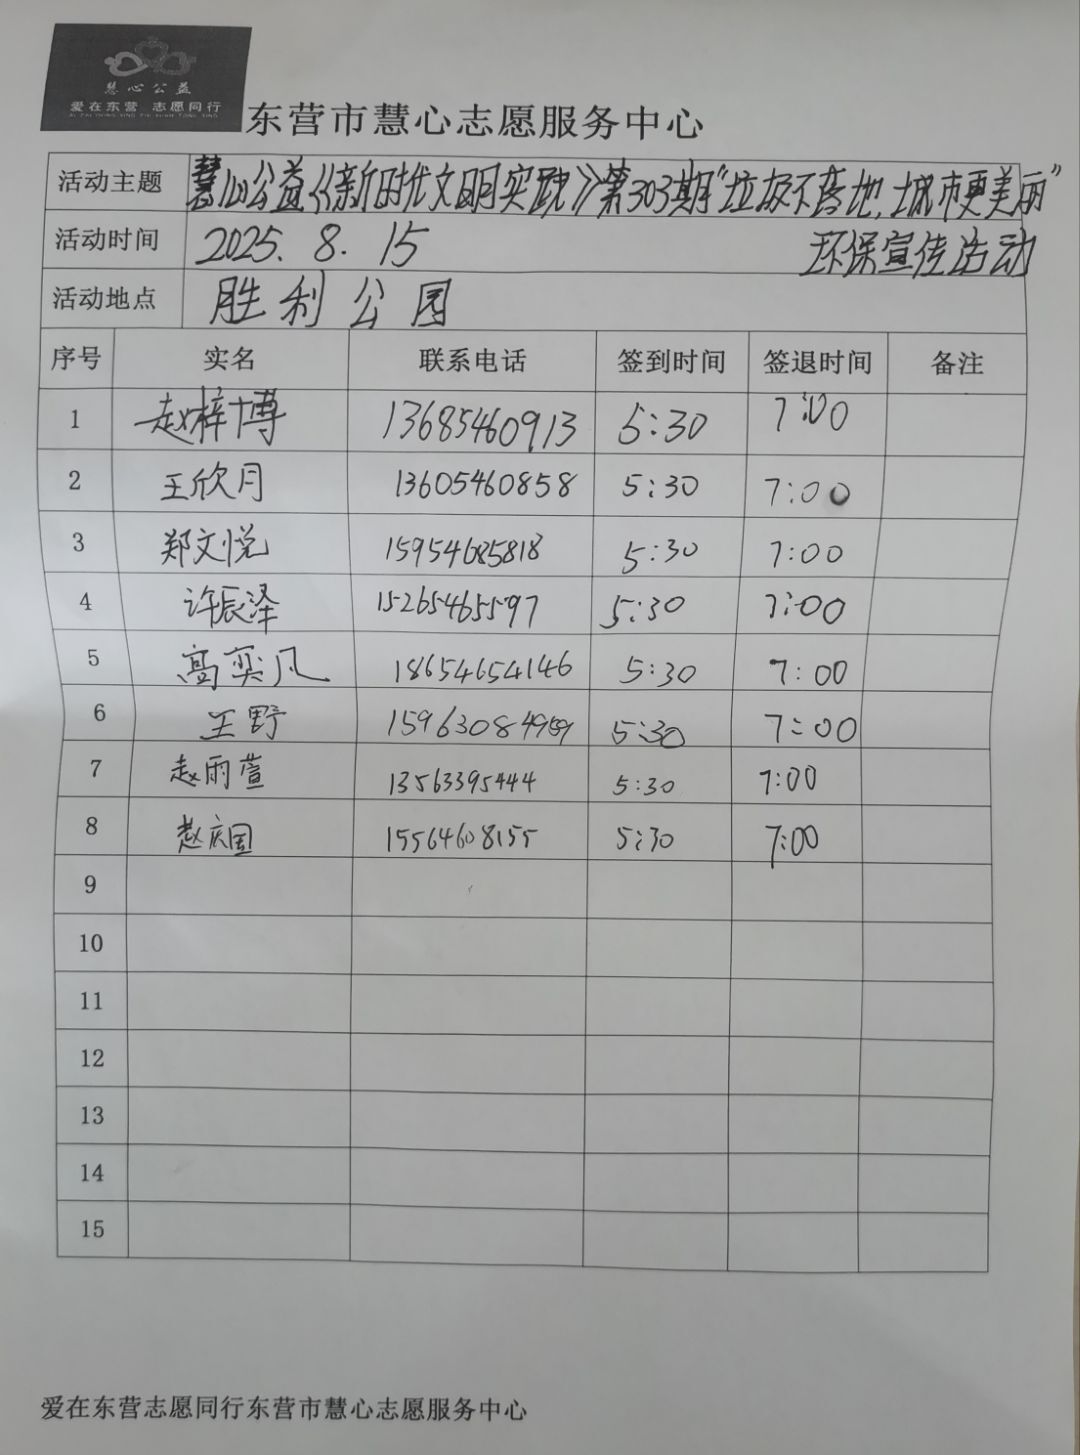 慧心公益
爱在东营 志愿同行
东营市慧心志愿服务中心
活动主题 慧心公益《新时代文明实践》第303期“垃圾不落地,城市更美丽”
环保宣传活动
活动时间 2025.8.15
活动地点 胜利公园
序号 实名 联系电话 签到时间 签退时间 备注
1 赵梓博 13685460913 5:30 7:00
2 王欣月 13605460858 5:30 7:00
3 郑文悦 15954685818 5:30 7:00
4 许辰泽 15265465597 5:30 7:00
5 高奕凡 18654654146 5:30 7:00
6 王野 5:30 7:00
7 赵雨萱 13563395444 5:30 7:00
8 赵庆国 15564608155 5:30 7:00
9
10
11
12
13
14
15
爱在东营志愿同行东营市慧心志愿服务中心